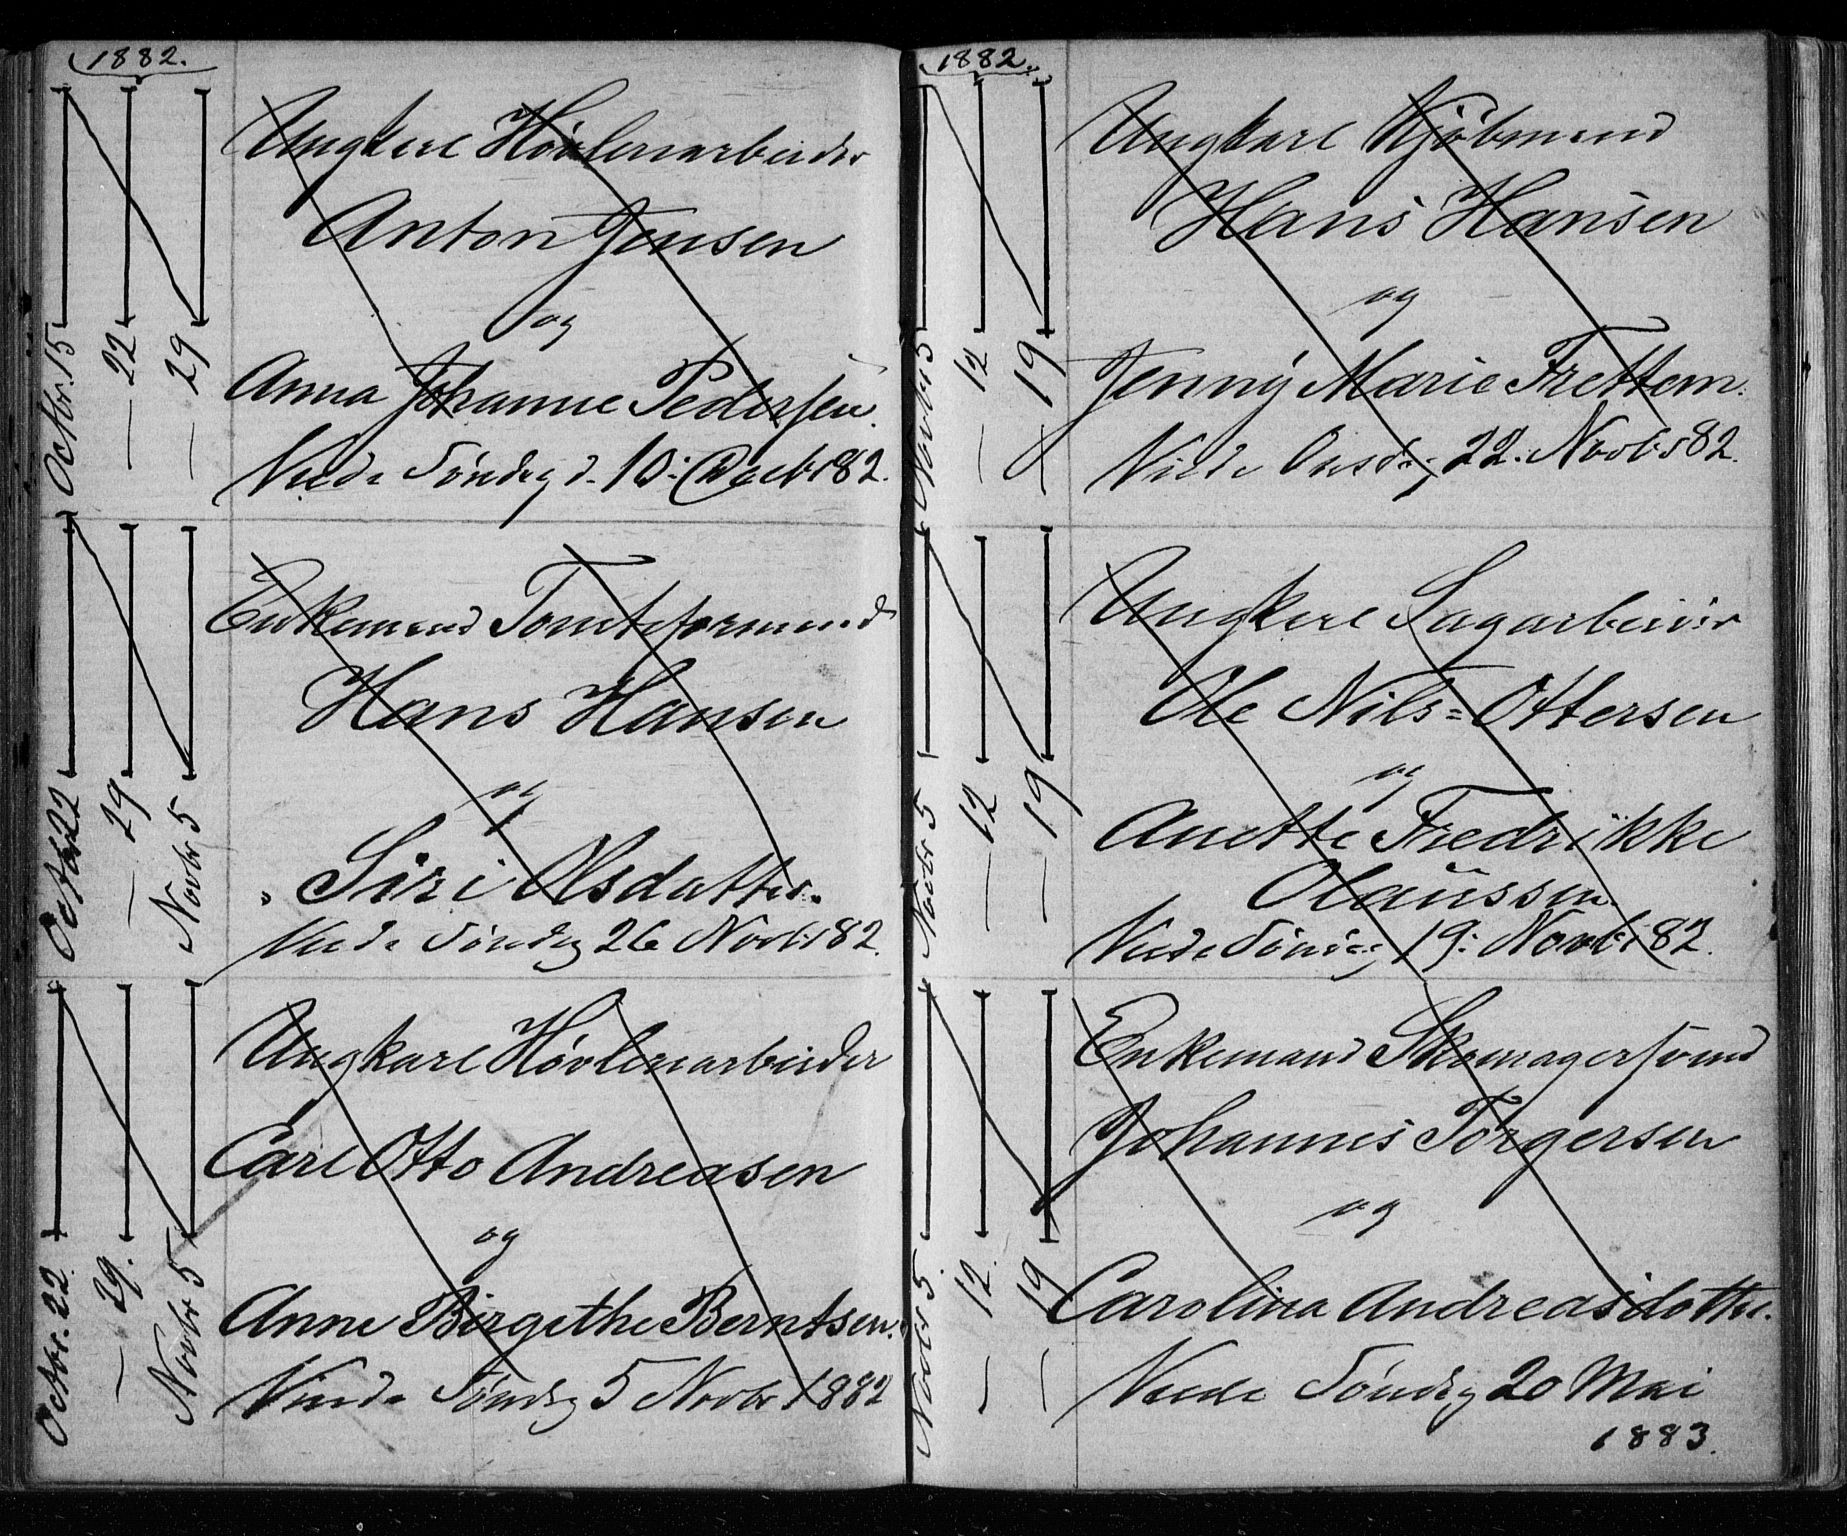 1882.
Octbr. 15
— 22
— 29
Ungkarl Høvlerarbeider
Anton Jensen
og
Anna Johanne Pedersen.
Viede Søndag d. 10: Decbr 82.
Octbr 22
— 29
Novbr 5
Enkemand Tomteformand
Hans Hansen
og
Siri Olsdatter.
Viede Søndag 26 Novbr 82.
Octbr. 22.
— 29.
Novbr 5
Ungkarl Høvleriarbeider
Carl Otto Andreasen
og
Anne Birgithe Berntsen.
Viede Søndag 5 Novbr 1882
1882.
Novbr 5
— 12
— 19
Ungkarl Kjøbmand
Hans Hansen
og
Jenny Marie Frettem.
Viede Onsdag 22. Novbr 82.
Novbr 5
— 12
— 19
Ungkarl Sagarbeider
Ole Nils=Ottersen
og
Anette Fredrikke
Olaussen.
Viede Søndag 19: Novbr 82.
Novbr 5.
— 12.
— 19
Enkemand Skomagersvend
Johannes Torgersen
og
Carolina Andreasdotter.
Viede Søndag 20 Mai
1883.